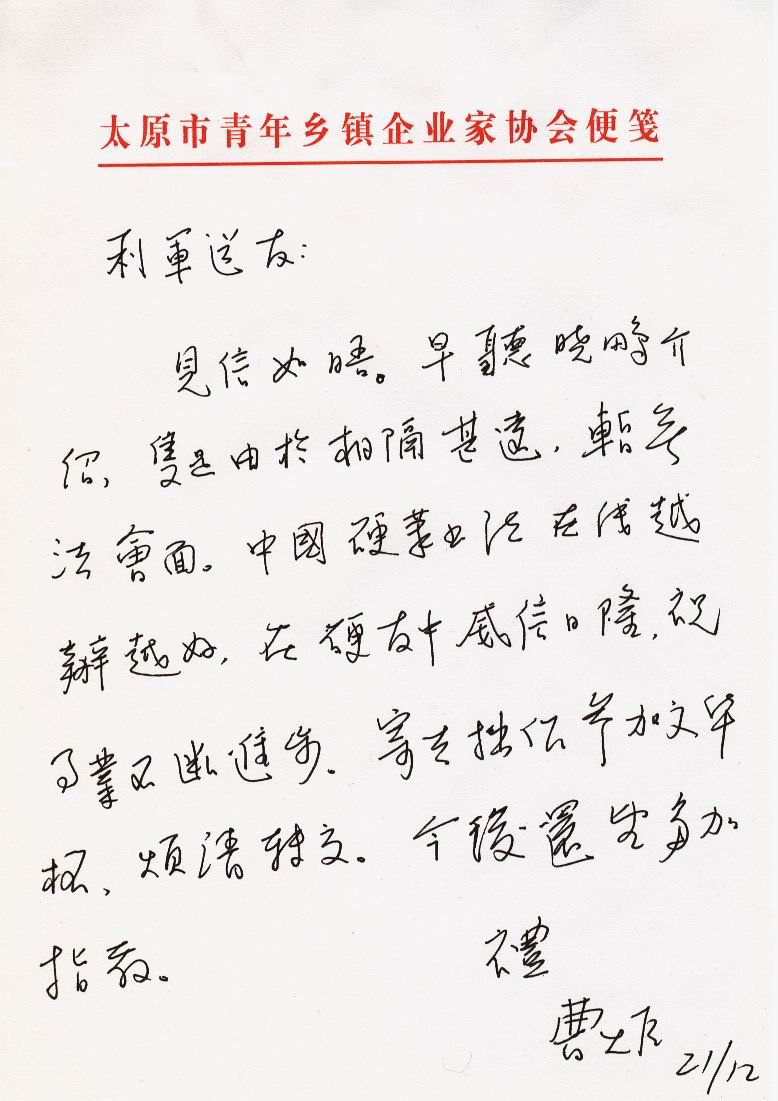 太原市青年乡镇企业家协会便笺
利軍道友：
見信如晤。早聽晓鹏介
绍，隻是由於相隔甚遠，暫无
法會面。中國硬筆书法在线越
辦越好，在硬友中威信日隆，祝
事業不断進步。寄去拙作参加文华
杯，烦請转交。今後還望多加
指教。
禮
曹
21/12